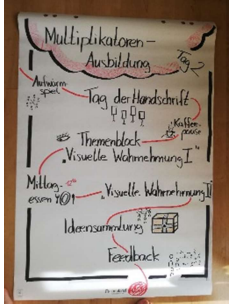 Multiplikatoren-
Ausbildung
Tag 2
Aufwärm-
spiel
Tag der Handschrift
Kaffee-
pause
Themenblock
"Visuelle Wahrnehmung I"
Mittag-
essen
"Visuelle Wahrnehmung II"
Ideensammlung
Feedback